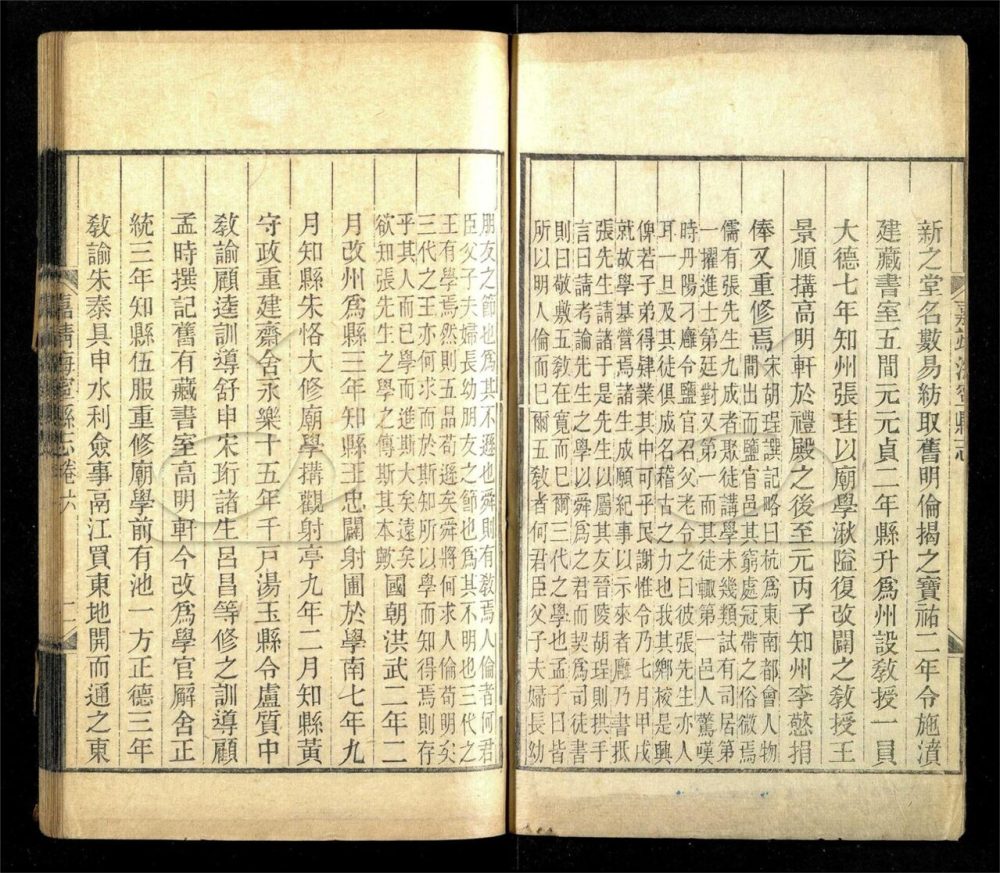 新之堂名數易紡取舊明倫揭之寶祐二年令施濆
建藏書室五間元元貞二年縣升爲州設敎授一員
大德七年知州張珪以廟學湫隘復改闢之敎授王
景順搆高明軒於禮殿之後至元丙子知州李慜捐
俸又重修焉
宋胡珵譔記略曰杭爲東南都會人物
間出而鹽官邑其窮處冠帶之俗微焉
儒有張先生九成者聚徒講學未幾類試有司居第
一擢進士第廷對又第一而其徒輙第一邑人驚嘆
時丹陽刁廱令鹽官召父老令之曰彼張先生亦人
耳一旦及其徒俱成名稽古之力也我其鄉校是興
俾若子弟得肄業其中可乎民謝惟令乃七月甲戌
就故學基營焉諸生成願紀事以示來者廱乃書抵
張先生請諸于是先生以屬其友晉陵胡珵則拱手
言曰請考論先生之學以舜爲之君而契爲司徒書
則曰敬敷五敎在寬而巳爾三代之學也孟子曰皆
所以明人倫而巳爾五敎者何君臣父子夫婦長幼
嘉靖海寧縣志
朋友之節也爲其不遜也舜則有敎焉人倫者何君
臣父子夫婦長幼朋友之節也爲其不明也三代之
王有學焉然則五品苟遜矣舜將何求人倫苟明矣
三代之王亦何求而於斯知所以學而知得焉則存
乎其人而巳學而進斯大矣遠矣
欲知張先生之學之傳斯其本歟
國朝洪武二年二
月改州爲縣三年知縣王忠闢射圃於學南七年九
月知縣朱恪大修廟學搆觀射亭九年二月知縣黃
守政重建齋舍永樂十五年千戸湯玉縣令盧質中
敎諭顧逵訓導舒申宋珩諸生呂昌等修之訓導顧
孟時撰記舊有藏書室高明軒今改爲學官廨舍正
統三年知縣伍服重修廟學前有池一方正德三年
敎諭朱泰具申水利僉事鬲江買東地開而通之東
嘉靖海寧縣志卷六
十一